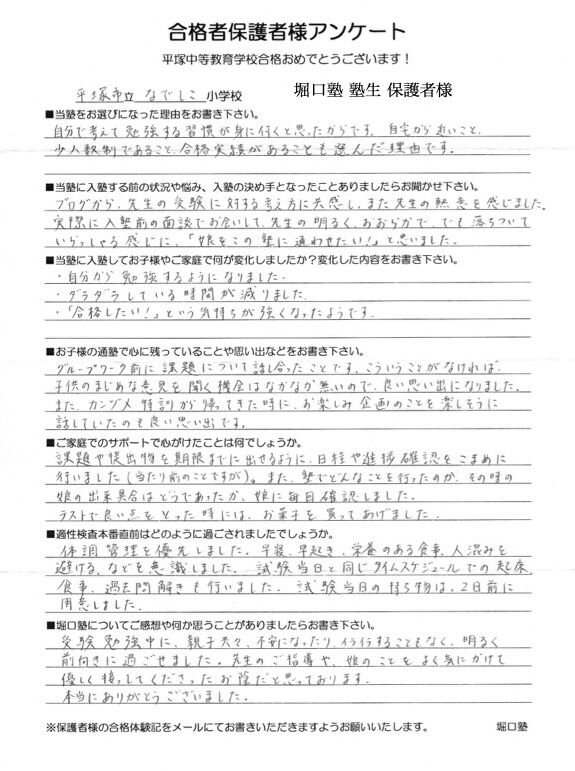 合格者保護者様アンケート
平塚中等教育学校合格おめでとうございます！
平塚市立 なでしこ 小学校
堀口塾 塾生 保護者様
■当塾をお選びになった理由をお書き下さい。
自分で考えて勉強する習慣が身に付くと思ったからです。自宅から近いこと、
少人数制であること、合格実績があることも選んだ理由です。
■当塾に入塾する前の状況や悩み、入塾の決め手となったことありましたらお聞かせ下さい。
ブログから、先生の受験に対する考え方に共感し、また先生の熱意を感じました。
実際に入塾前の面談でお会いして、先生の明るく、おおらかで、でも落ちついて
いらっしゃる感じに、「娘をこの塾に通わせたい！」と思いました。
■当塾に入塾してお子様やご家庭で何が変化しましたか？変化した内容をお書き下さい。
・自分から勉強するようになりました。
・ダラダラしている時間が減りました。
・「合格したい！」という気持ちが強くなったようです。
■お子様の通塾で心に残っていることや思い出などをお書き下さい。
グループワーク前に課題について話し合ったことです。こういうことがなければ、
子供のまじめな意見を聞く機会はなかなか無いので、良い思い出になりました。
また、カンヅメ特訓から帰ってきた時に、お楽しみ企画のことを楽しそうに
話していたのも良い思い出です。
■ご家庭でのサポートで心がけたことは何でしょうか。
課題や提出物を期限までに出せるように、日程や進捗確認をこまめに
行いました（当たり前のことですが）。また、塾でどんなことを行ったのか、その時の
娘の出来具合はどうであったか、娘に毎日確認しました。
テストで良い点をとった時には、お菓子を買ってあげました。
■適性検査本番直前はどのように過ごされましたでしょうか。
体調管理を優先しました。早寝、早起き、栄養のある食事、人混みを
避ける、などを意識しました。試験当日と同じタイムスケジュールでの起床、
食事、過去問解きも行いました。試験当日の持ち物は、2日前に
用意しました。
■堀口塾についてご感想や何か思うことがありましたらお書き下さい。
受験勉強中に、親子共々、不安になったり、イライラすることもなく、明るく
前向きに過ごせました。先生のご指導や、娘のことをよく気にかけて
優しく接してくださったお陰だと思っております。
本当にありがとうございました。
※保護者様の合格体験記をメールにてお書きいただきますようお願いいたします。
堀口塾